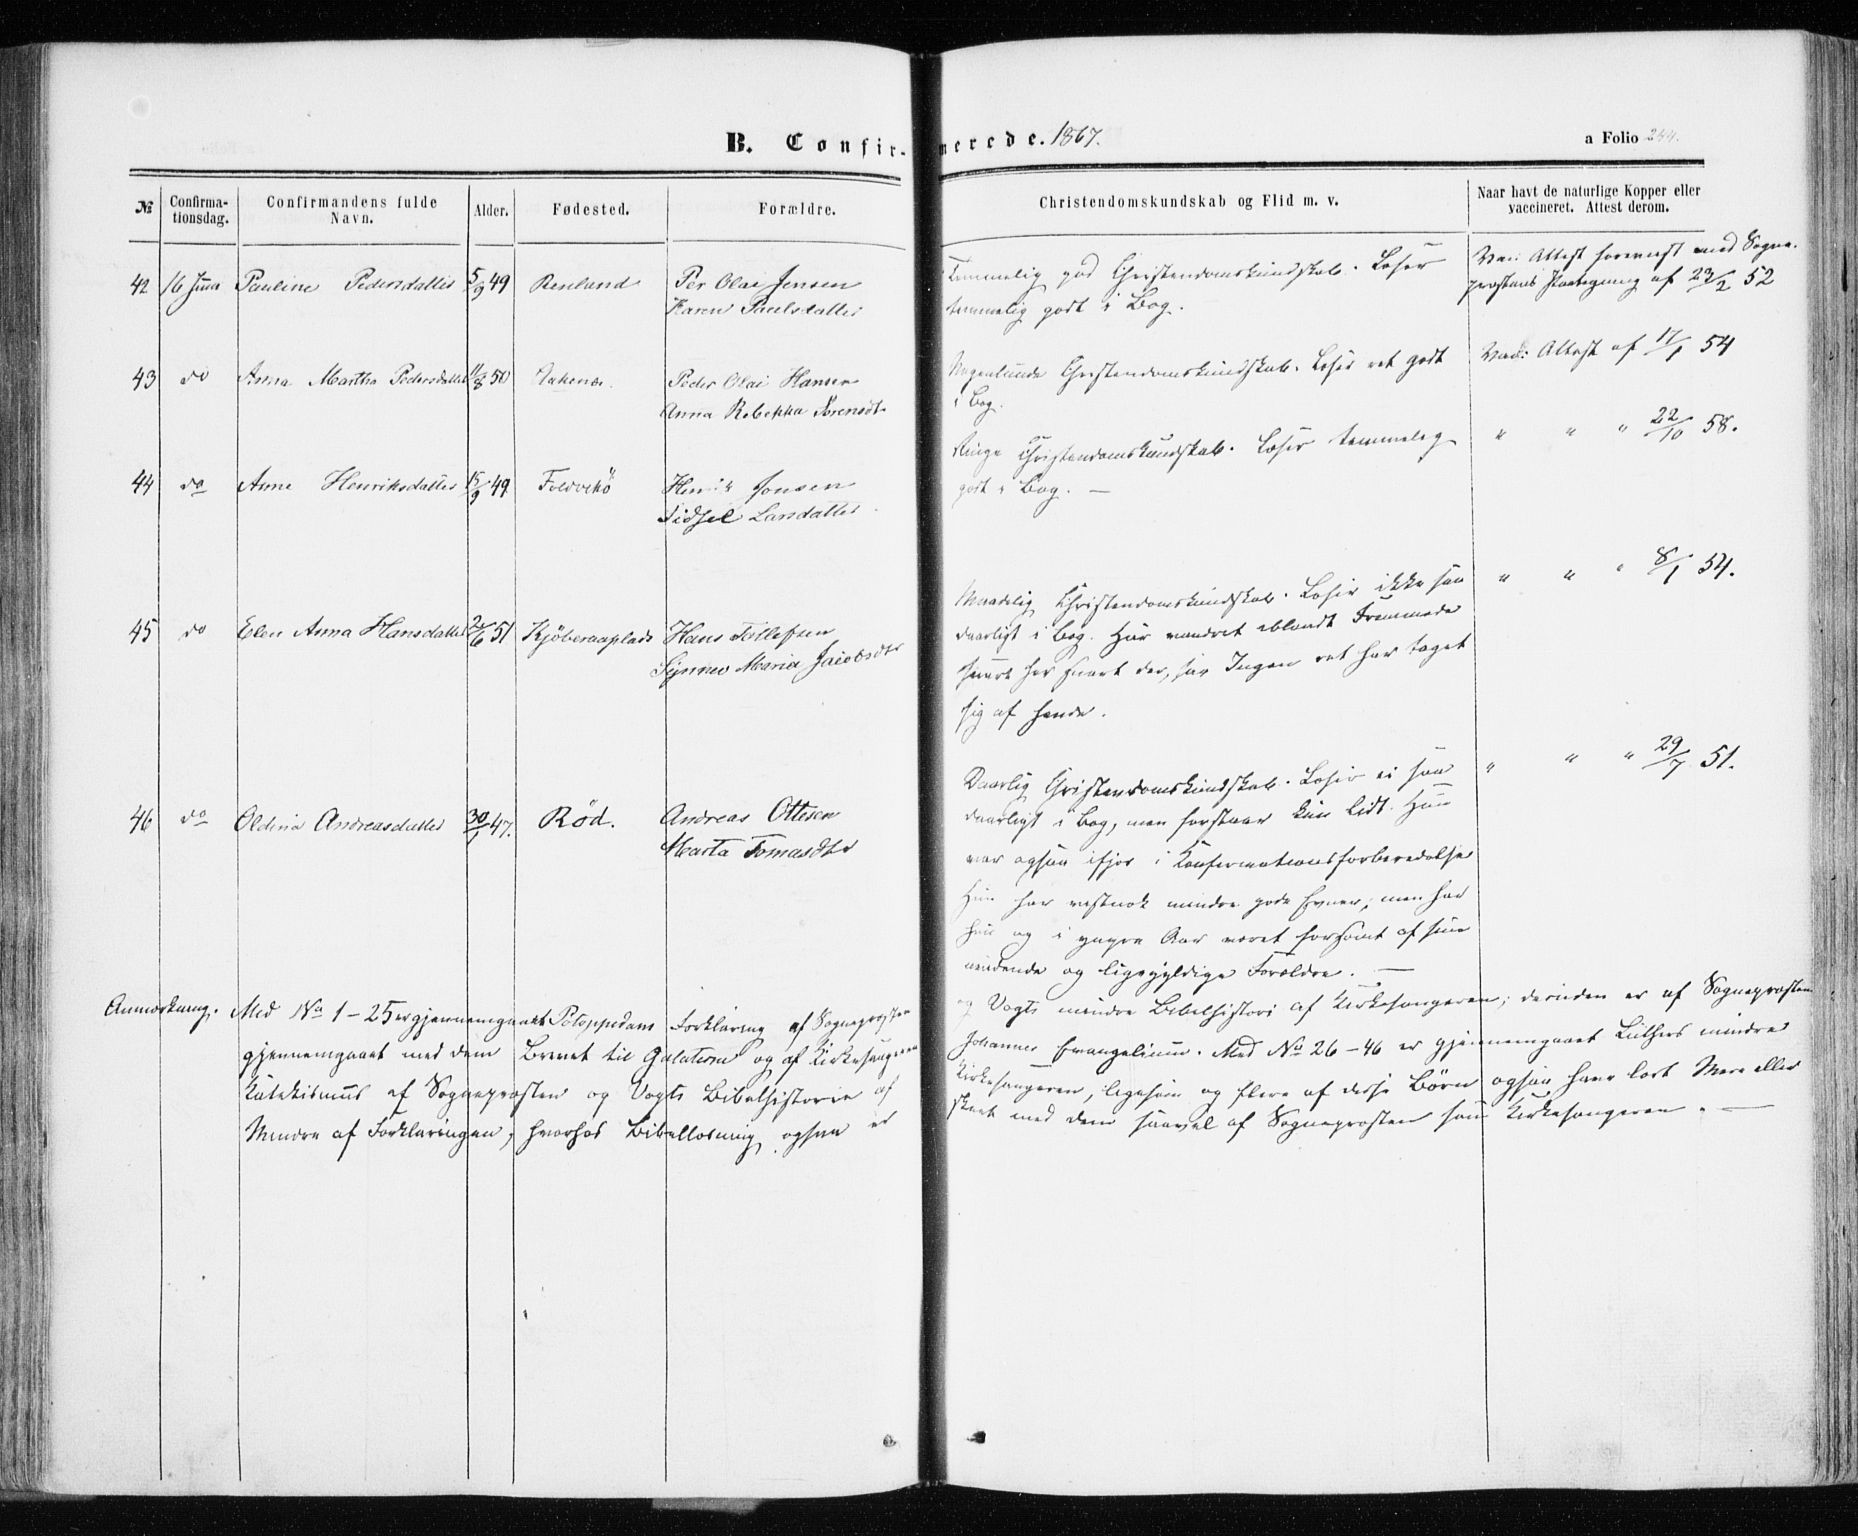 B. Confirmerede. 1867.
a Folio 244.
№
Confirmationsdag.
Confirmandens fulde Navn.
Alder.
Fødested.
Forældre.
Christendomskundskab og Flid m. v.
Naar havt de naturlige Kopper eller vaccineret. Attest derom.
42 16 Juna Pauline Pedersdatter 5/9 49 Renland Per Olai Jensen
Karen Paulsdatter
Temmelig god Christendomskundskab. Læser
temmelig godt i Bog.
Vac: Attest forevist med Sogne-
præstens Paategning af 23/2 52
43 do Anna Martha Pedersdatter 11/8 50 Aakenæs. Peder Olai Hansen
Anna Rebekka Sørensdtr
Nogenlunde Christendomskundskab. Læser ret godt
i Bog.
Vac: Attest af 17/1 54
44 do Anne Henriksdatter 15/9 49 Foldvikø Henrik Jonsen
Sidsel Larsdatter
Ringe Christendomskundskab. Læser temmelig
godt i Bog. —
" " " 22/10 58.
45 do Elen Anna Hansdatter 2/6 51 Kjøberaaplads Hans Tollefsen
Synnev Maria Jacobsdtr
Maadelig Christendomskundskab. Læser ikke saa
daarligt i Bog. Har vandret iblandt Fremmede
snart her snart der, saa Ingen ret har taget
sig af hende.
" " " 8/1 54.
46 do Oldina Andreasdatter 30/1 47. Rød. Andreas Ottesen
Marta Tomasdtr
Daarlig Christendomskundskab. Læser ei saa
daarligt i Bog, men forstaar kun lidt. Hun
var ogsaa ifjor i Konfirmationsforberedelse
Hun har vistnok mindre gode Evner; men har
hun og i yngre Aar været forsømt af sine
uvidende og ligegyldige Forældre. —
Anmærkning. Med No 1–25 er gjennemgaaet Potoppidans Forklaring af Sognepræsten
gjennemgaaet med dem Brevet til Galaterne og af Kirkesangeren
Katekismus af Sognepræsten og Vogts Bibelhistorie af
Mindre af Forklaringen, hvorhos Bibellæsning ogsaa er
og Vogts mindre Bibelhistori af Kirkesangeren; desuden er af Sognepræsten
Johannes Evangelium. Med No 26–46 er gjennemgaaet Luthers mindre
Kirkesangeren, ligesom og flere af disse Børn ogsaa have læst Mere eller
skeet med dem saavel af Sognepræsten som Kirkesangeren. —